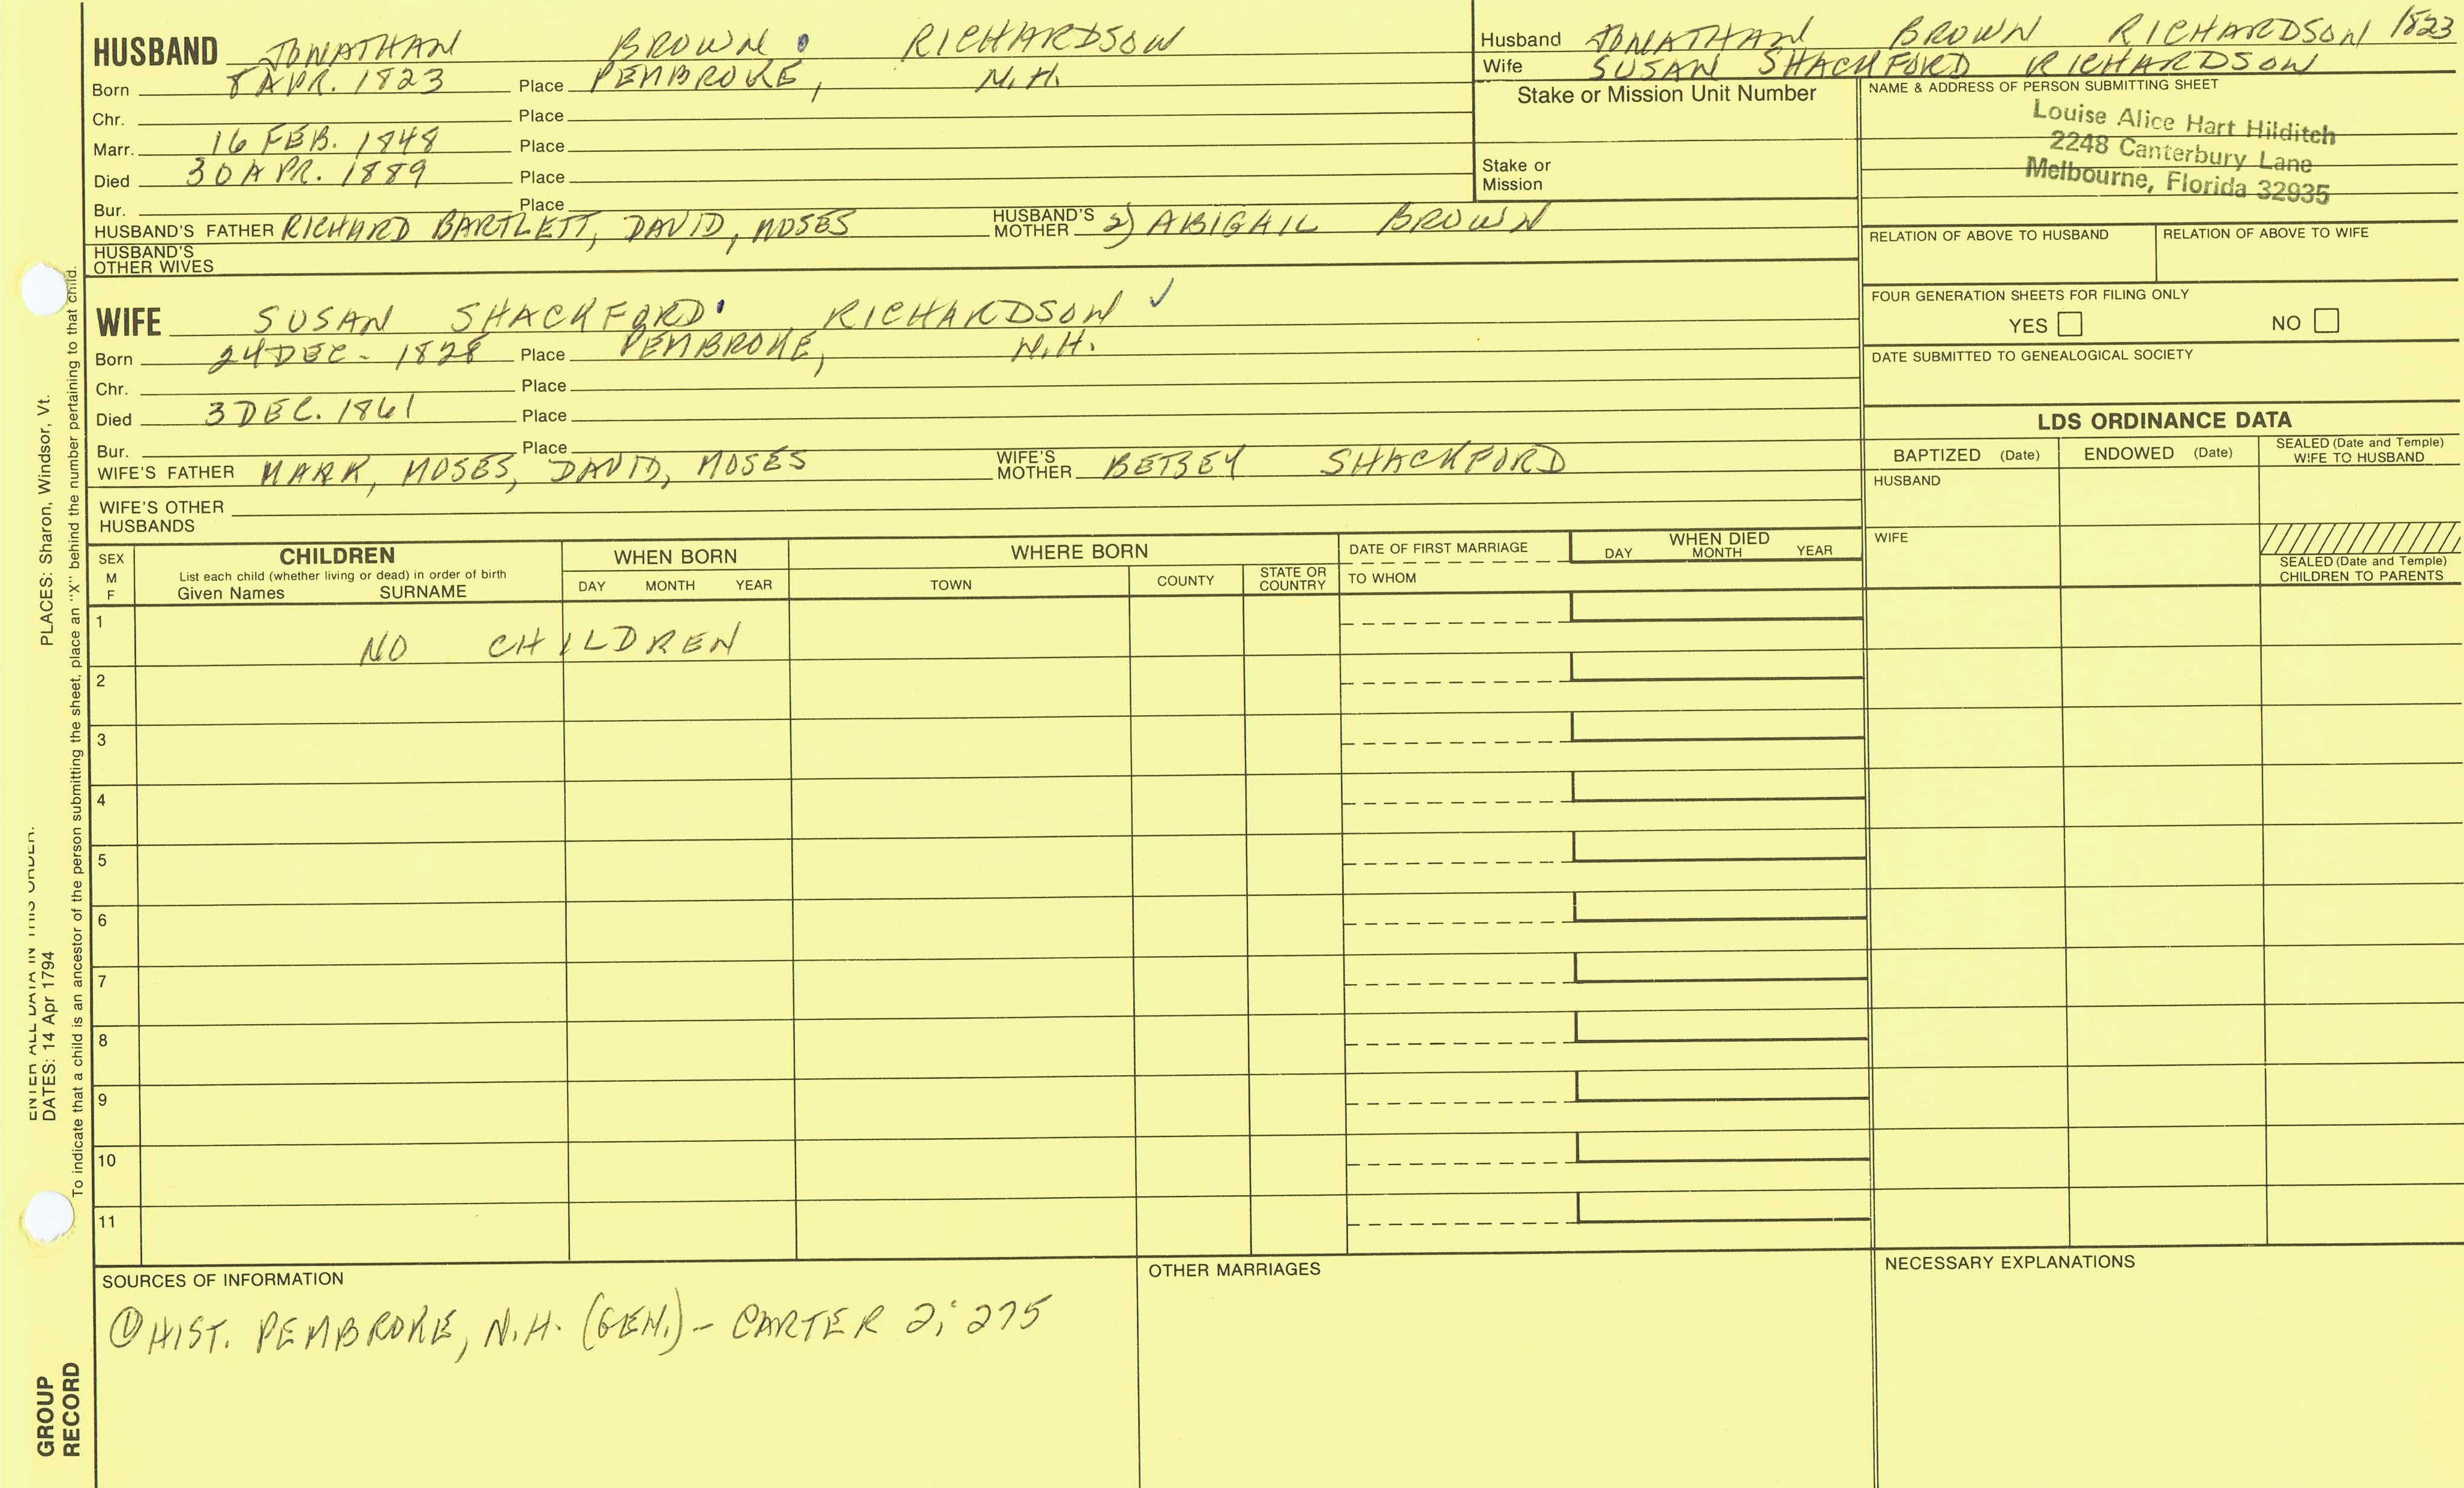 HUSBAND JONATHAN BROWN RICHARDSON
Born 8 APR. 1823 Place PEMBROKE, N.H.
Chr. Place
Marr. 16 FEB. 1848 Place
Died 30 APR. 1889 Place
Bur. Place
HUSBAND'S FATHER RICHARD BARTLETT, DAVID, MOSES HUSBAND'S MOTHER 2) ABIGAIL BROWN
HUSBAND'S OTHER WIVES
Husband JONATHAN BROWN RICHARDSON 1823
Wife SUSAN SHACKFORD RICHARDSON
Stake or Mission Unit Number
Stake or Mission
NAME & ADDRESS OF PERSON SUBMITTING SHEET
Louise Alice Hart Hilditch
2248 Canterbury Lane
Melbourne, Florida 32935
RELATION OF ABOVE TO HUSBAND RELATION OF ABOVE TO WIFE
FOUR GENERATION SHEETS FOR FILING ONLY
YES NO
DATE SUBMITTED TO GENEALOGICAL SOCIETY
WIFE SUSAN SHACKFORD RICHARDSON ✓
Born 24 DEC - 1828 Place PEMBROKE, N.H.
Chr. Place
Died 3 DEC. 1861 Place
Bur. Place
WIFE'S FATHER MARK, MOSES, DAVID, MOSES WIFE'S MOTHER BETSEY SHACKFORD
WIFE'S OTHER HUSBANDS
LDS ORDINANCE DATA
BAPTIZED (Date) ENDOWED (Date) SEALED (Date and Temple) WIFE TO HUSBAND
HUSBAND
WIFE
SEALED (Date and Temple) CHILDREN TO PARENTS
SEX M F
CHILDREN
List each child (whether living or dead) in order of birth
Given Names SURNAME
WHEN BORN
DAY MONTH YEAR
WHERE BORN
TOWN COUNTY STATE OR COUNTRY
DATE OF FIRST MARRIAGE
TO WHOM
WHEN DIED
DAY MONTH YEAR
1 NO CHILDREN
2
3
4
5
6
7
8
9
10
11
SOURCES OF INFORMATION
① HIST. PEMBROKE, N.H. (GEN.) - CARTER 2; 275
OTHER MARRIAGES
NECESSARY EXPLANATIONS
ENTER ALL DATA IN THIS ORDER.
DATES: 14 Apr 1794 PLACES: Sharon, Windsor, Vt.
To indicate that a child is an ancestor of the person submitting the sheet, place an "X" behind the number pertaining to that child.
GROUP
RECORD